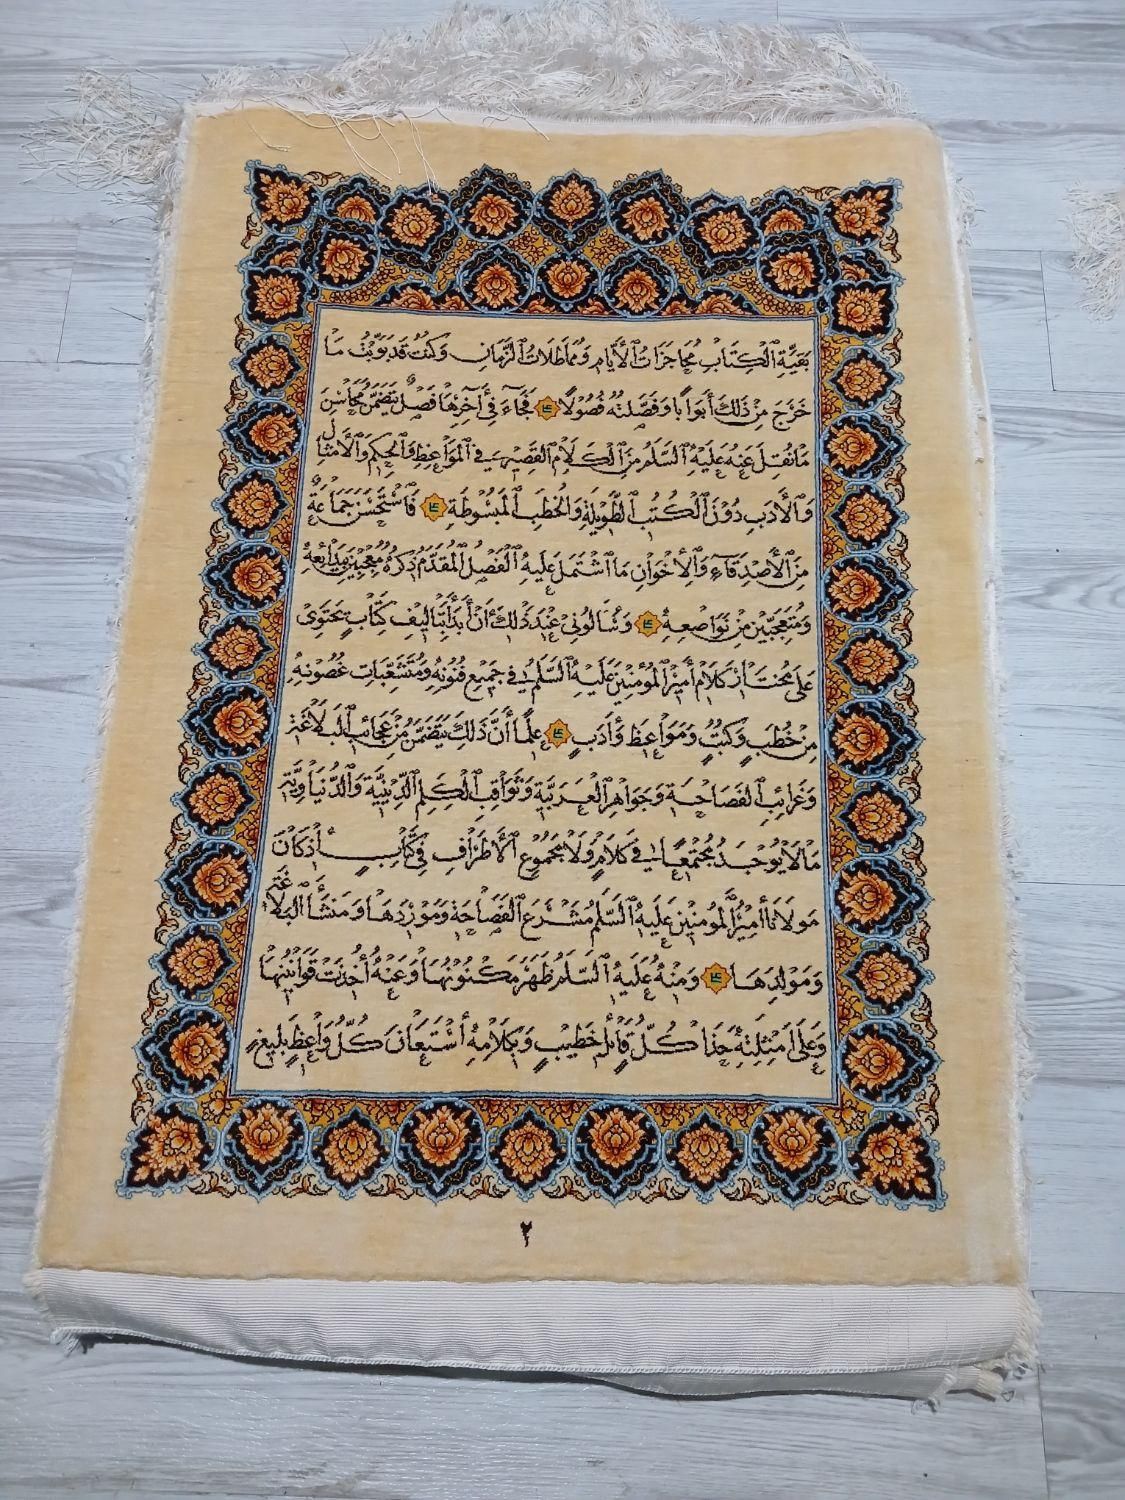 بَقِيَّةِ الْكِتَابِ مُحَاجَزَاتُ الْأَيَّامِ وَمُمَاطَلَاتُ الزَّمَانِ وَكُنْتُ قَدْ بَوَّبْتُ مَا
خَرَجَ مِنْ ذَلِكَ أَبْوَابًا وَفَصَّلْتُهُ فُصُولًا فَجَاءَ فِي آخِرِهَا فَصْلٌ يَتَضَمَّنُ مَحَاسِنَ
مَا نُقِلَ عَنْهُ عَلَيْهِ السَّلَامُ مِنَ الْكَلَامِ الْقَصِيرِ فِي الْمَوَاعِظِ وَالْحِكَمِ وَالْأَمْثَالِ
وَالْأَدَبِ دُونَ الْكُتُبِ الطَّوِيلَةِ وَالْخُطَبِ الْمَبْسُوطَةِ فَاسْتَحْسَنَ جَمَاعَةٌ
مِنَ الْأَصْدِقَاءِ وَالْإِخْوَانِ مَا اشْتَمَلَ عَلَيْهِ الْفَصْلُ الْمُقَدَّمُ ذِكْرُهُ مُعْجِبِينَ بِبَدَائِعِهِ
وَمُتَعَجِّبِينَ مِنْ نَوَاصِعِهِ وَسَأَلُونِي عِنْدَ ذَلِكَ أَنْ أَبْدَأَ بِتَأْلِيفِ كِتَابٍ يَحْتَوِي
عَلَى مُخْتَارِ كَلَامِ أَمِيرِ الْمُؤْمِنِينَ عَلَيْهِ السَّلَمُ فِي جَمِيعِ فُنُونِهِ وَمُتَشَعِّبَاتِ غُصُونِهِ
مِنْ خُطَبٍ وَكُتُبٍ وَمَوَاعِظَ وَأَدَبٍ عِلْمًا أَنَّ ذَلِكَ يَتَضَمَّنُ مِنْ عَجَائِبِ الْبَلَاغَةِ
وَغَرَائِبِ الْفَصَاحَةِ وَجَوَاهِرِ الْعَرَبِيَّةِ وَثَوَاقِبِ الْكَلِمِ الدِّينِيَّةِ وَالدُّنْيَاوِيَّةِ
مَا لَا يُوجَدُ مُجْتَمِعًا فِي كَلَامٍ وَلَا مَجْمُوعِ الْأَطْرَافِ فِي كِتَابٍ إِذْ كَانَ
مَوْلَانَا أَمِيرُ الْمُؤْمِنِينَ عَلَيْهِ السَّلَمُ مُشَرِّعَ الْفَصَاحَةِ وَمَوْرِدَهَا وَمَنْشَأَ الْبَلَاغَةِ
وَمَوْلِدَهَا وَمِنْهُ عَلَيْهِ السَّلَمُ ظَهَرَ مَكْنُونُهَا وَعَنْهُ أُخِذَتْ قَوَانِينُهَا
وَعَلَى أَمْثِلَتِهِ حَذَا كُلُّ قَائِلٍ خَطِيبٍ وَبِكَلَامِهِ اسْتَعَانَ كُلُّ وَاعِظٍ بَلِيغٍ
٢